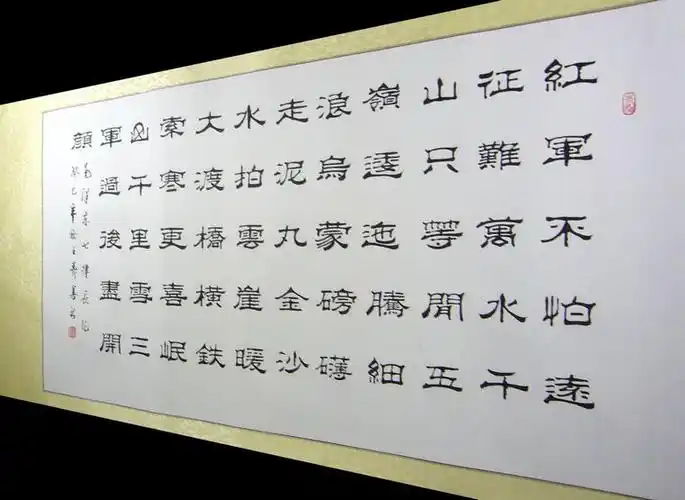 紅軍不怕遠
征難萬水千
山只等閒五
嶺逶迤騰細
浪烏蒙磅礴
走泥丸金沙
水拍雲崖暖
大渡橋橫鉄
索寒更喜岷
山千里雪三
軍過後盡開
顏
毛澤東七律長征